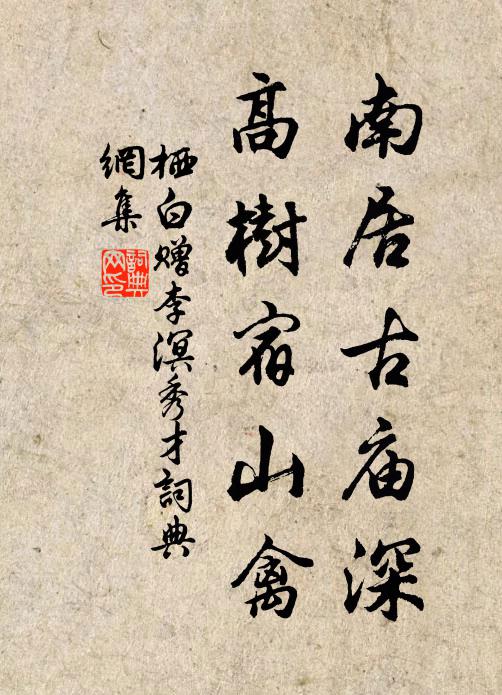 南居古庙深
高樹宿山禽
栖白赠李溟秀才詞典
網集
詞典
网印